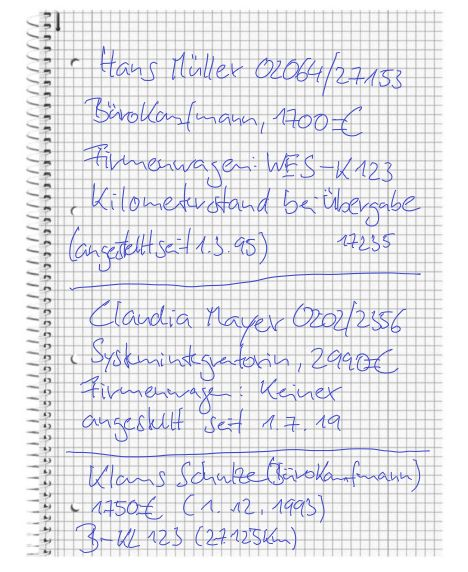 Hans Müller 02064/27153
Bürokaufmann, 1700€
Firmenwagen: WES-K123
Kilometerstand bei Übergabe
(angestellt seit 1.3.95) 17235
Claudia Mayer 0202/2356
Systemintegratorin, 2990€
Firmenwagen: Keiner
angestellt seit 1.7.19
Klaus Schulze (Bürokaufmann)
1750€ (1.12.1993)
B-KL 123 (27125km)